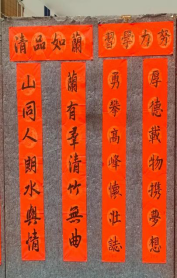 努力學習
厚德載物携夢想
勇攀高峰懷壯誌
蘭如品清
蘭有羣清竹無曲
山同人朗水與情